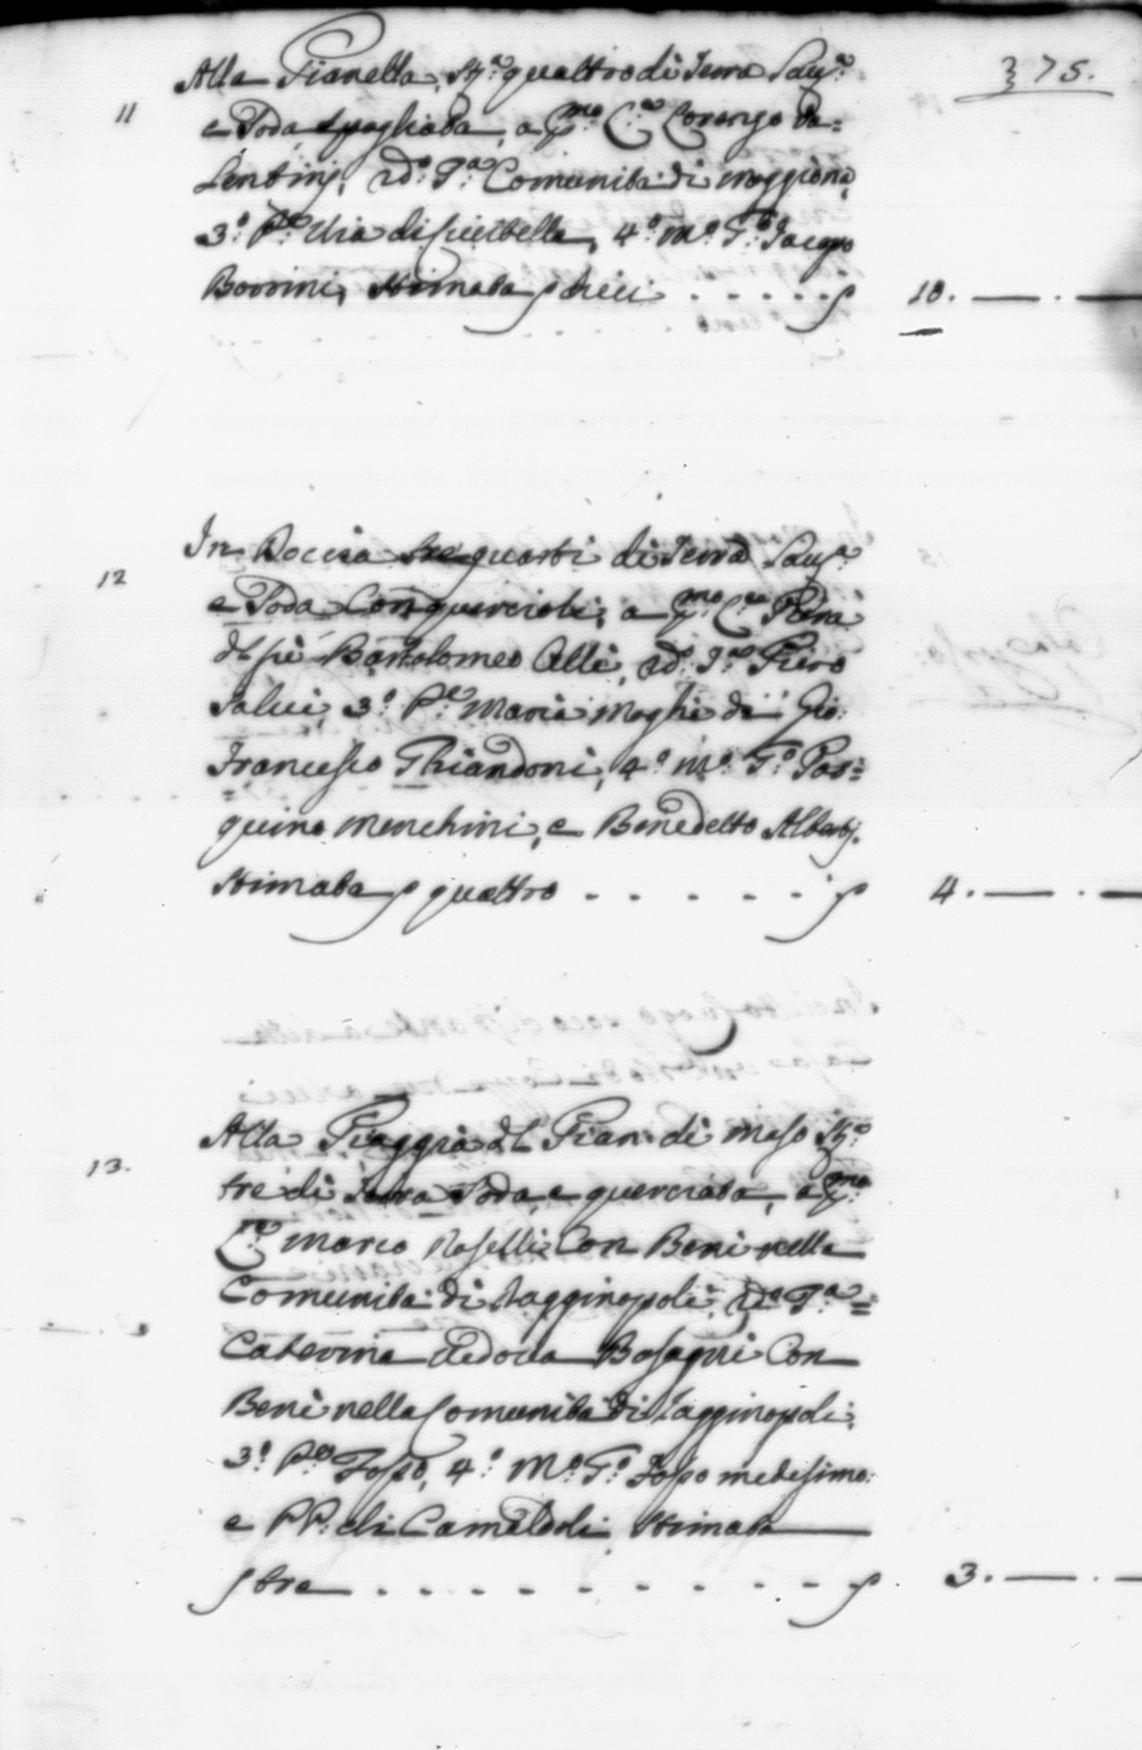 375.
11
Alla Pianella, St.a quattro di Terra Lau.a
e Soda, a p.mo C.a Lorenzo Va=
lentini, 2do P.a Comunità di Moggiona,
3.o P.te Via di, 4.o M.o T.o Iacopo
Borrini, stimata s dieci . . . . . s 10. — . —
12
In trequarti di Terra Lau.a
e Soda Con quercioli, a p.mo C.a
del fù Bartolomeo Alli, 2do P.a Piero
Salvi, 3.o P.te Maria Moglie di Gio:
Francesco Ghiandoni, 4.o M.o T.o Pas=
quino Menchini, e Benedetto Alberti.
Stimata s quattro . . . . . s 4. — . —
13.
Alla Piaggia del Pian di Maso St.a
tre di Terra Soda, e querciata, a p.mo
C.a Marco Roselli Con Beni nella
Comunità di Raggiopoli, 2do P.a =
Caterina Vedova Con
Beni nella Comunità di Raggiopoli,
3.o P.te Fosso, 4.o M.o T.o Fosso medesimo
e PP. di Camaldoli, stimata
s tre . . . . . . . . . . s 3. — . —